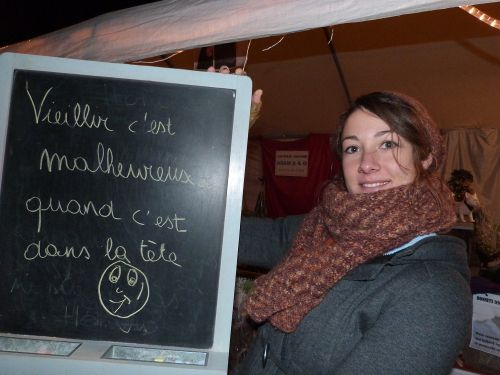 Vieillir c'est
malheureux
quand c'est
dans la tête